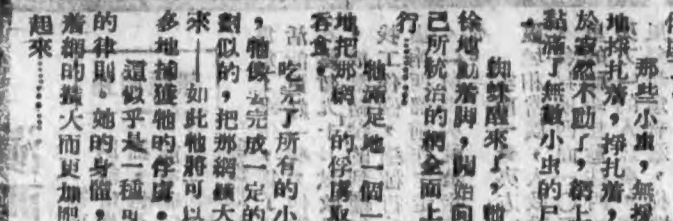 那些小虫，無
地掙扎着，掙扎着
於寂然不動了，網上
黏滿了無數小虫的尸
。
蜘蛛醒來了，牠
徐地動着脚，開始向
己所統治的網全面上
行………
牠滿足地一個一
地把那網上的俘虜取
吞食。
吃完了所有的小
，牠像去完成一定的
劃似的，把那網擴大
來——如此牠將可以
多地捕獲牠的俘虜。
這似乎是一種
的律則。她的身體，
着網的擴大而更加肥
起來………